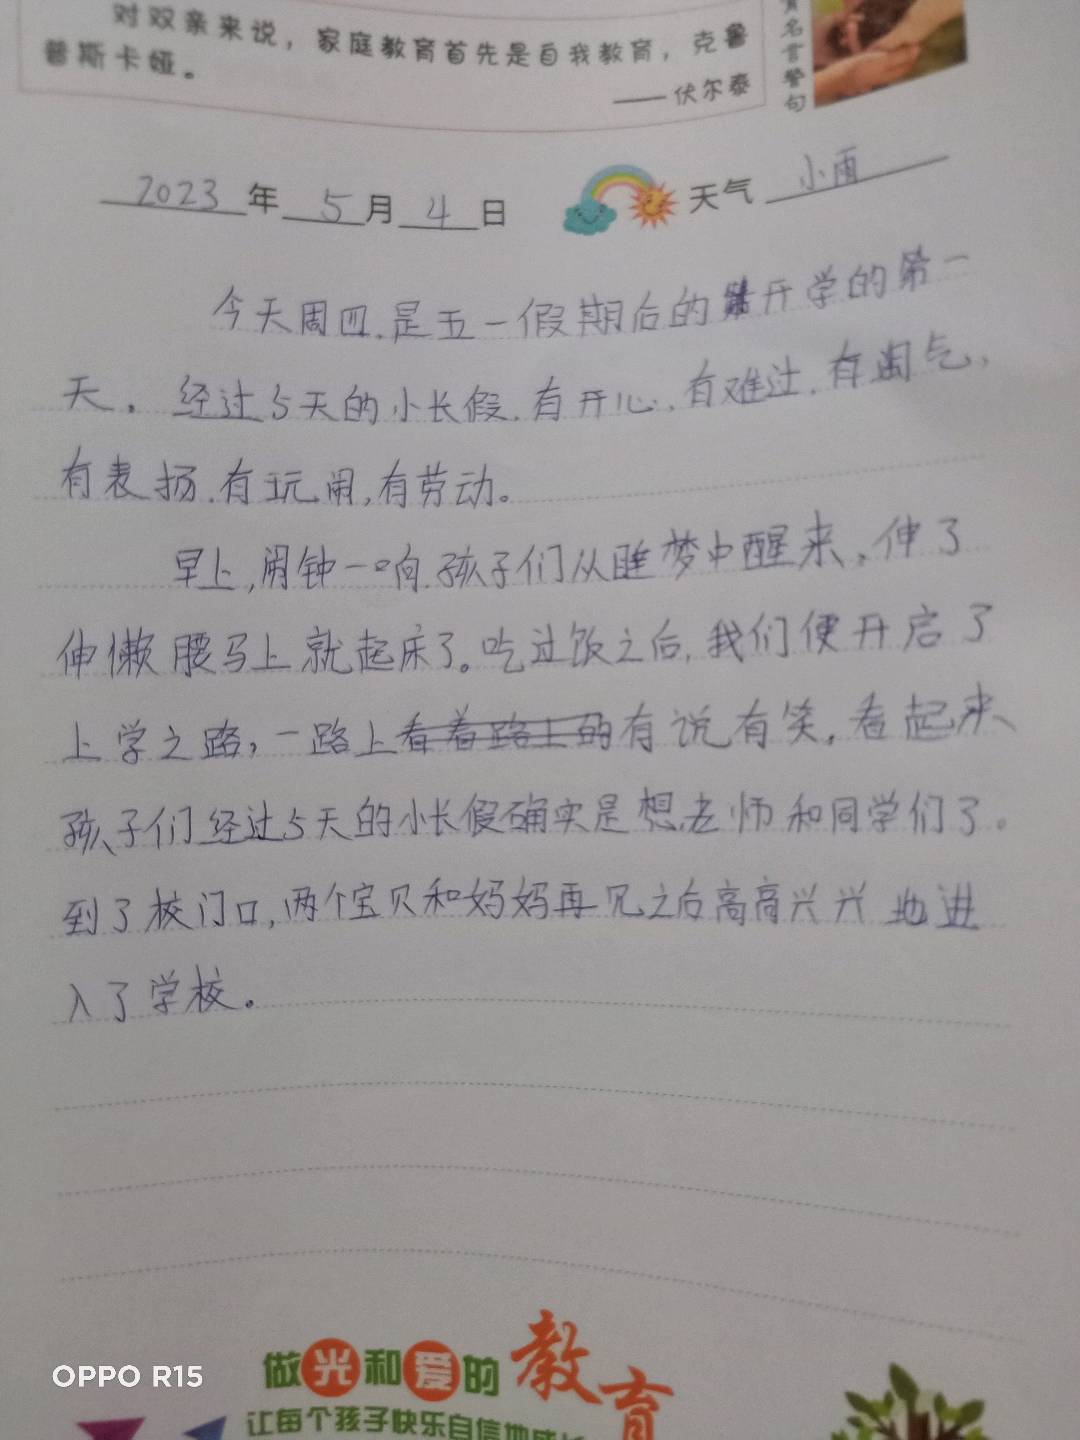 对双亲来说，家庭教育首先是自我教育，克鲁
普斯卡娅。
——伏尔泰
名言警句
2023年5月4日 天气 小雨
今天周四.是五一假期后的开学的第一
天。经过5天的小长假.有开心.有难过.有淘气,
有表扬.有玩闹,有劳动。
早上,闹钟一响.孩子们从睡梦中醒来,伸了
伸懒腰马上就起床了。吃过饭之后,我们便开启了
上学之路,一路上看着路上的有说有笑,看起来
孩子们经过5天的小长假确实是想老师和同学们了。
到了校门口,两个宝贝和妈妈再见之后高高兴兴地进
入了学校。
做光和爱的教育
让每个孩子快乐自信地成长
OPPO R15